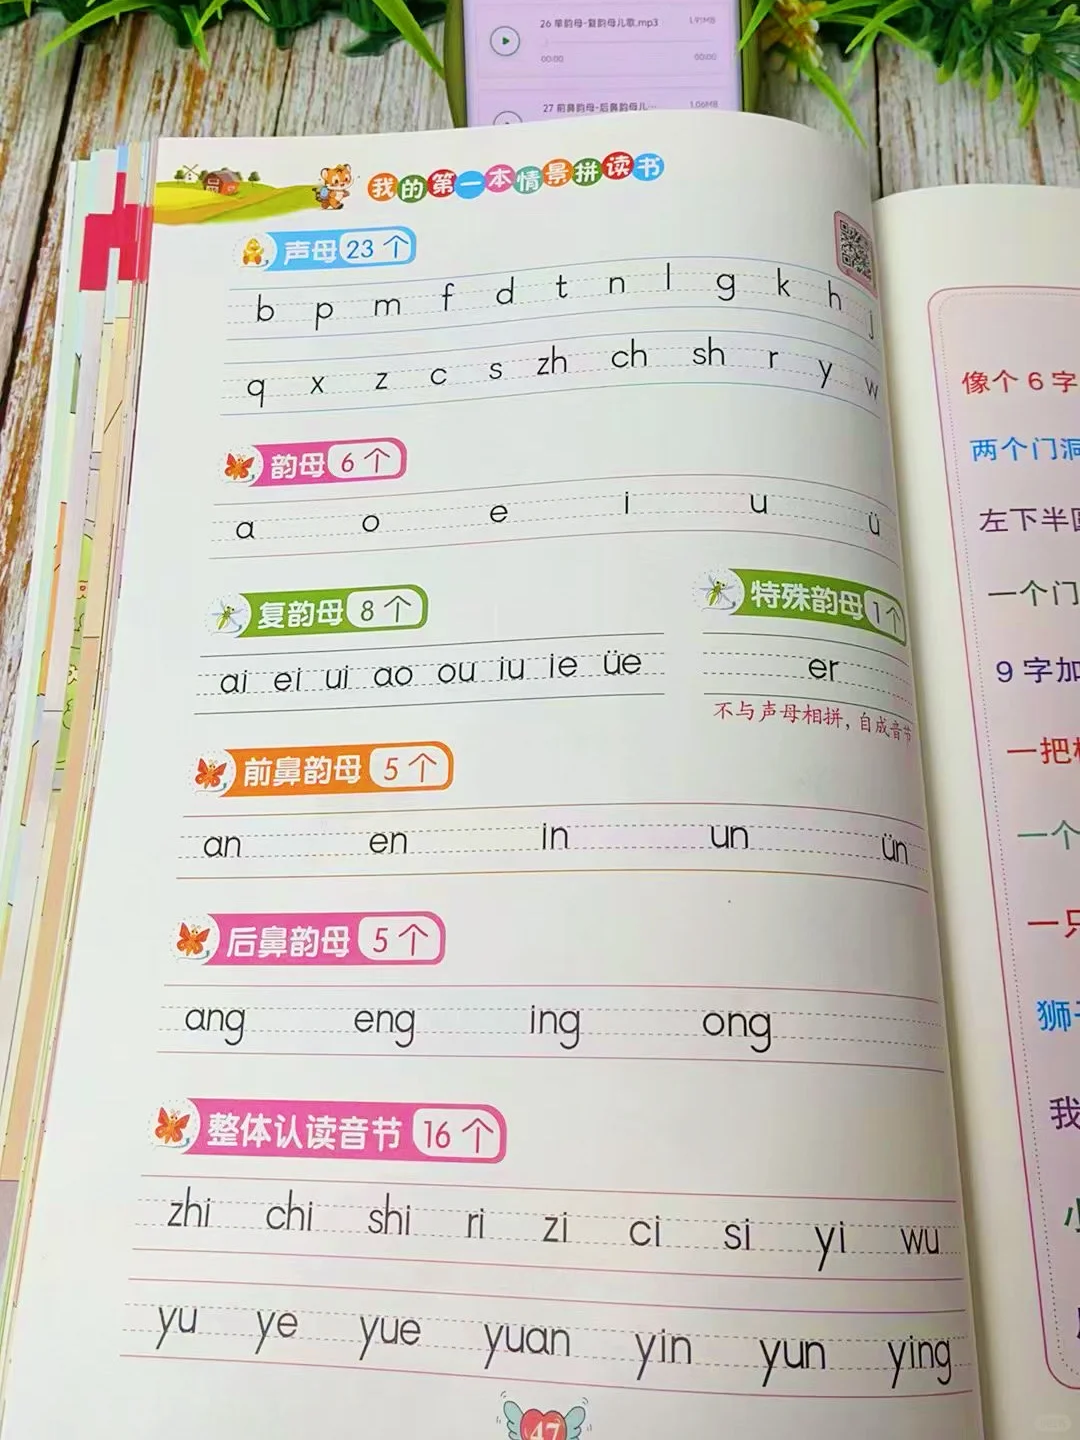 26 单韵母-复韵母儿歌.mp3
1.91MB
00:00
00:00
27 前鼻韵母-后鼻韵母儿…
1.06MB
我的第一本情景拼读书
声母 23 个
b p m f d t n l g k h j
q x z c s zh ch sh r y w
韵母 6 个
a o e i u ü
复韵母 8 个
ai ei ui ao ou iu ie üe
特殊韵母 1个
er
不与声母相拼，自成音节
前鼻韵母 5 个
an en in un ün
后鼻韵母 5 个
ang eng ing ong
整体认读音节 16 个
zhi chi shi ri zi ci si yi wu
yu ye yue yuan yin yun ying
47
像个 6 字
两个门洞
左下半圆
一个门
9 字加
一把
一个
一只
狮子
我
小